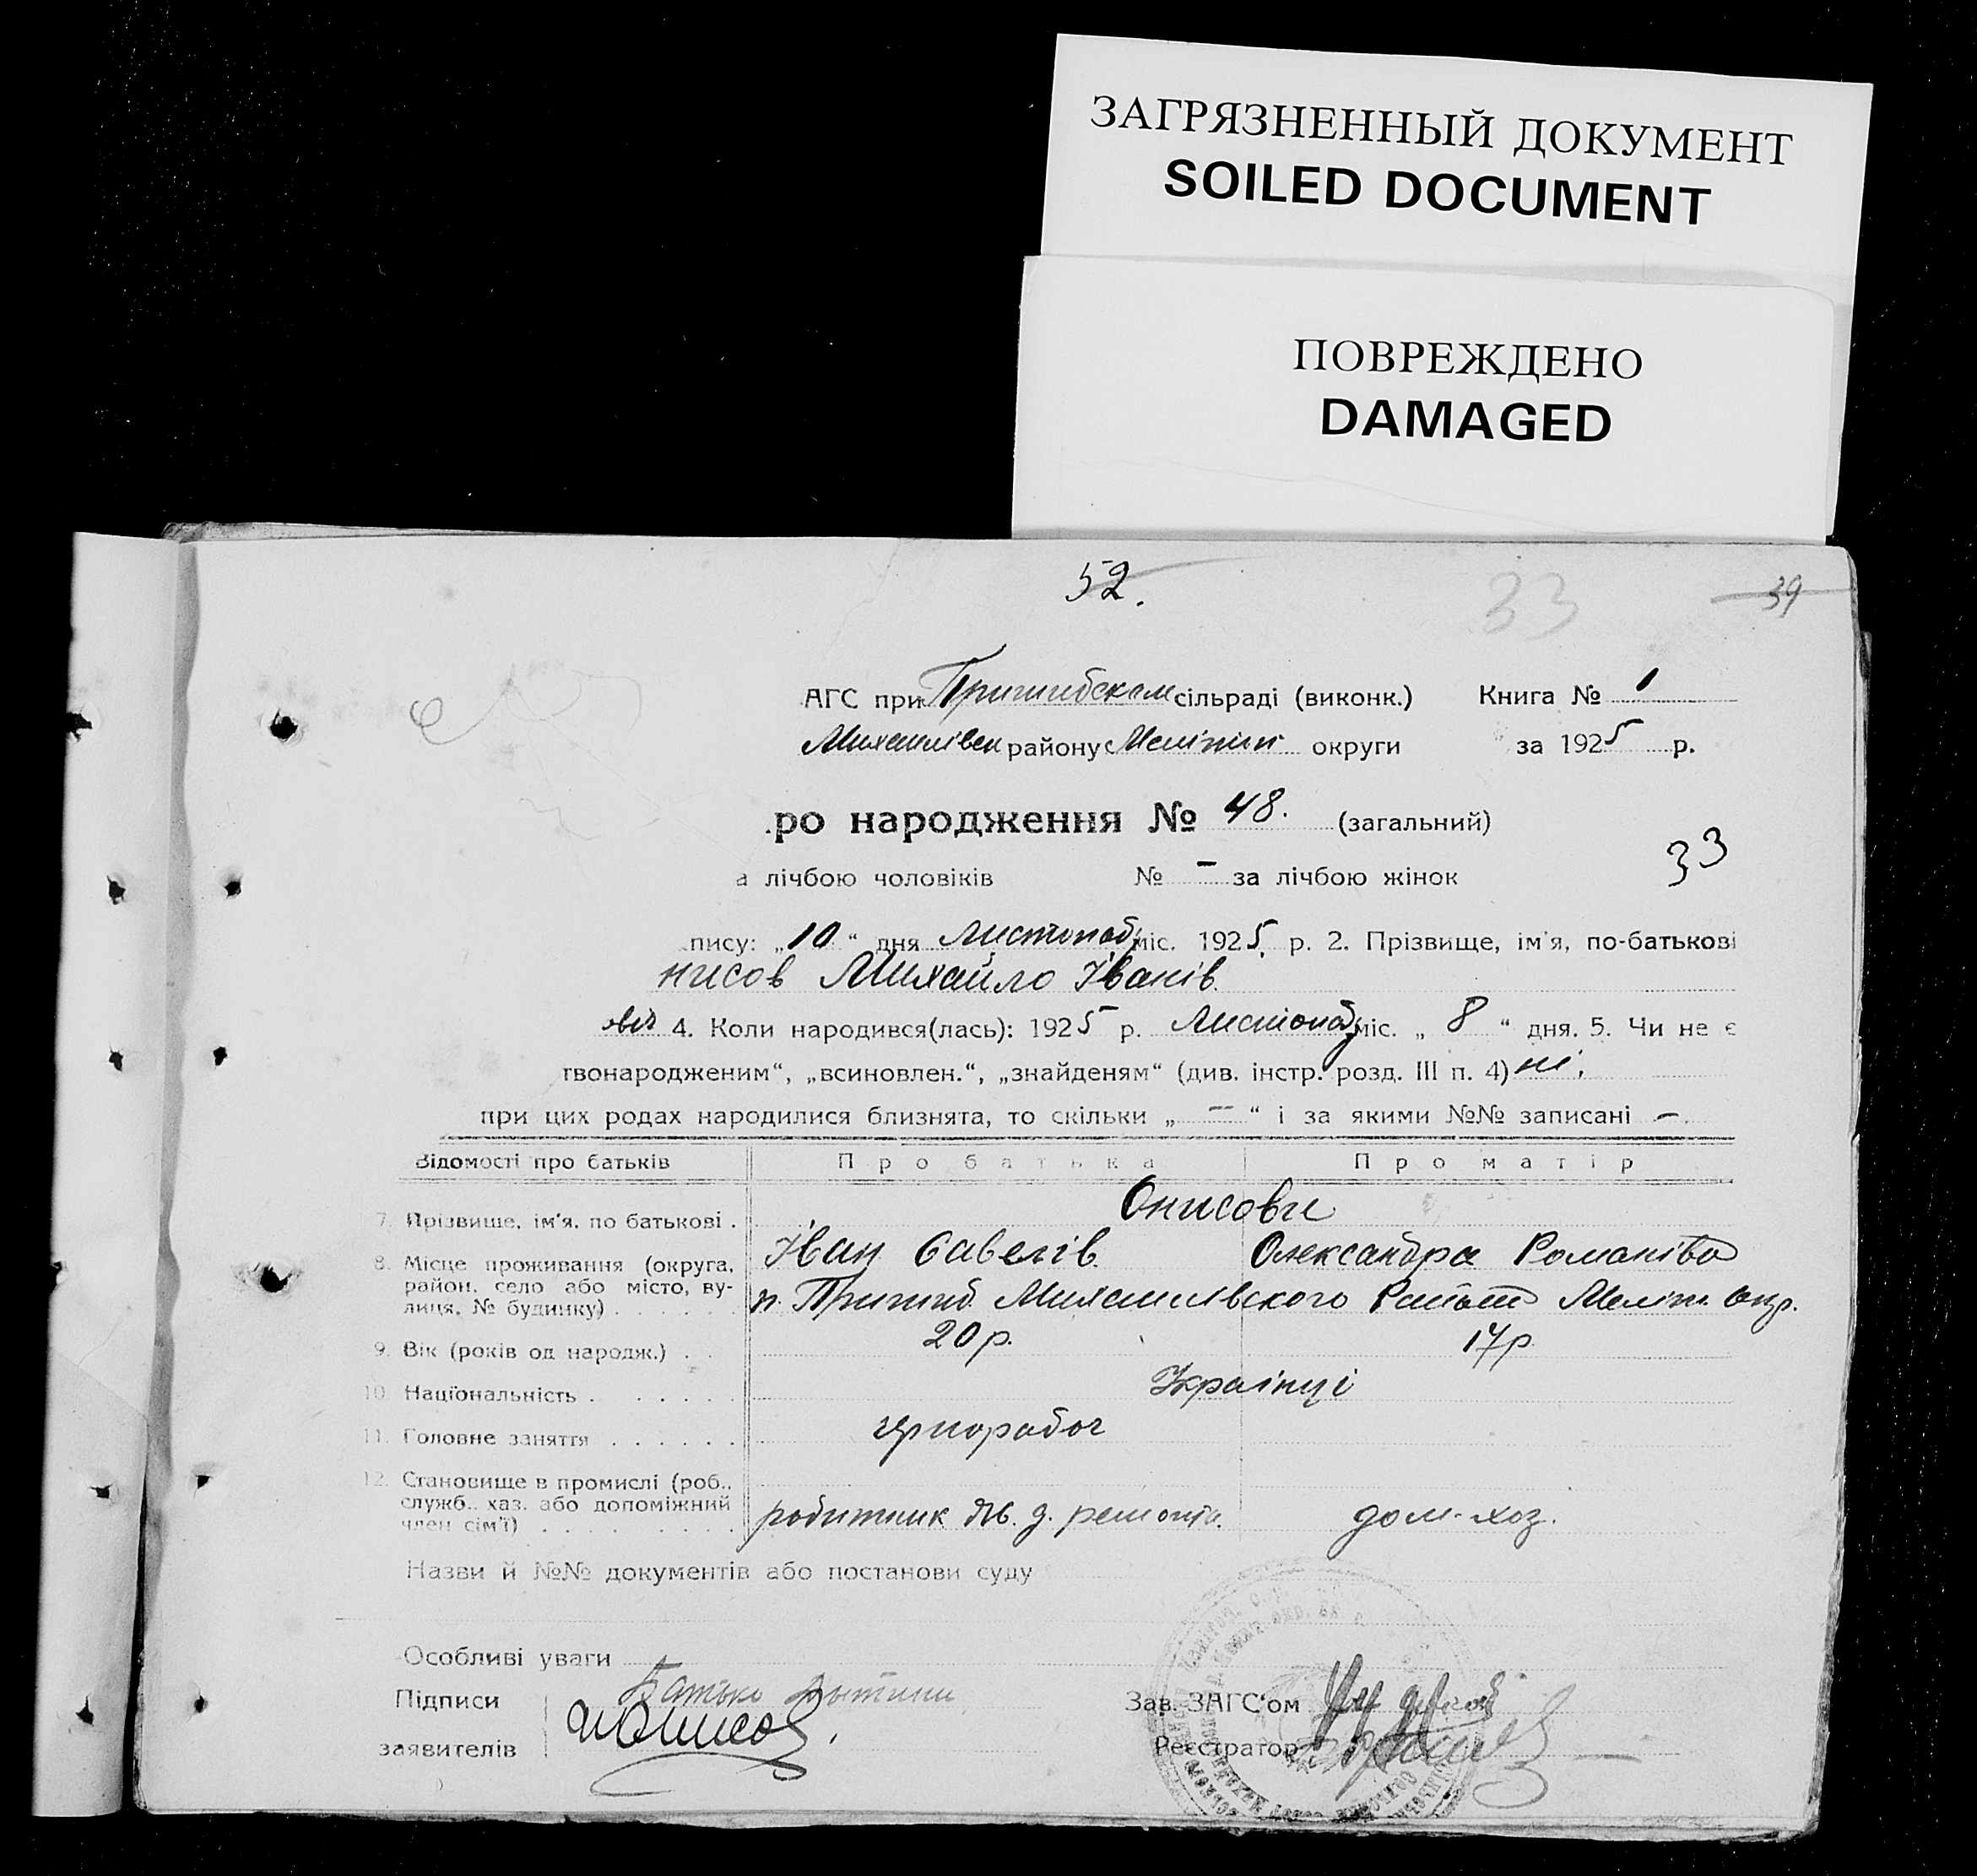 ЗАГРЯЗНЕННЫЙ ДОКУМЕНТ
SOILED DOCUMENT
ПОВРЕЖДЕНО
DAMAGED
52.
33
39
АГС при Пришибском сільраді (виконк.) Книга № 1
Михайлівск району Меліпіл округи за 1925 р.
ро народження № 48. (загальний)
33
а лічбою чоловіків № – за лічбою жінок
пису: „10“ дня Листопад міс. 1925 р. 2. Прізвище, ім'я, по-батькові
нисов Михайло Іванів.
4. Коли народився(лась): 1925 р. Листопад міс. „ 8 “ дня. 5. Чи не є
твонародженим“, „всиновлен.“, „знайденям“ (див. інстр. розд. III п. 4) ні.
при цих родах народилися близнята, то скільки „ — “ і за якими №№ записані –.
Відомості про батьків Про батька Про матір
Онисови
7. Прізвище, ім'я, по батькові .
Іван Савелів. Олександра Романівна
8. Місце проживання (округа, район, село або місто, ву-
лиця, № будинку) . . . . . п. Пришиб. Михайлівского Меліт. окр.
9. Вік (років од народж.) . . 20 р. 17 р.
10. Національність . . . . . . Українці
11. Головне заняття . . . . . . чернорабоч
12. Становище в промислі (роб.,
служб., хаз. або допоміжний
член сім'ї) . . . . . . . . . робитник д. ремонта. дом-хоз.
Назви й №№ документів або постанови суду
Особливі уваги
Підписи Батько дытини Зав. ЗАГС'ом
заявителів Реєстратор